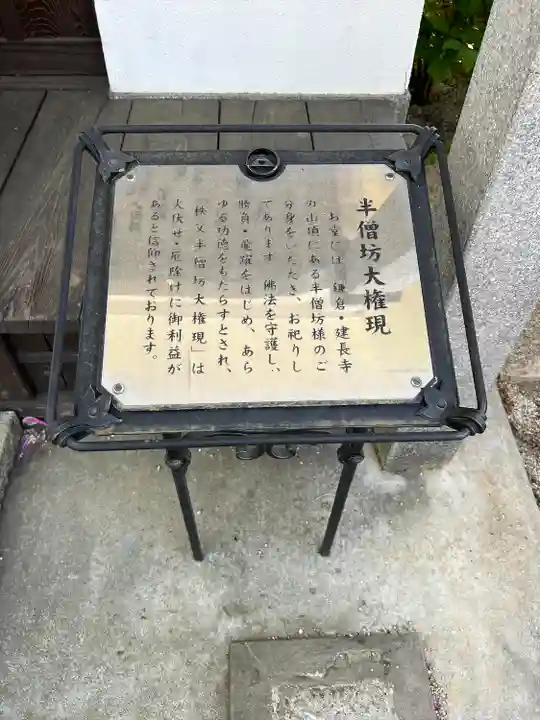 半僧坊大権現
お堂には、鎌倉・建長寺
の山頂にある半僧坊様のご
分身をいただき、お祀りし
てあります。佛法を守護し、
勝負・飛躍をはじめ、あら
ゆる功徳をもたらすとされ、
「秩父半僧坊大権現」は
火伏せ・厄除けに御利益が
あると信仰されております。